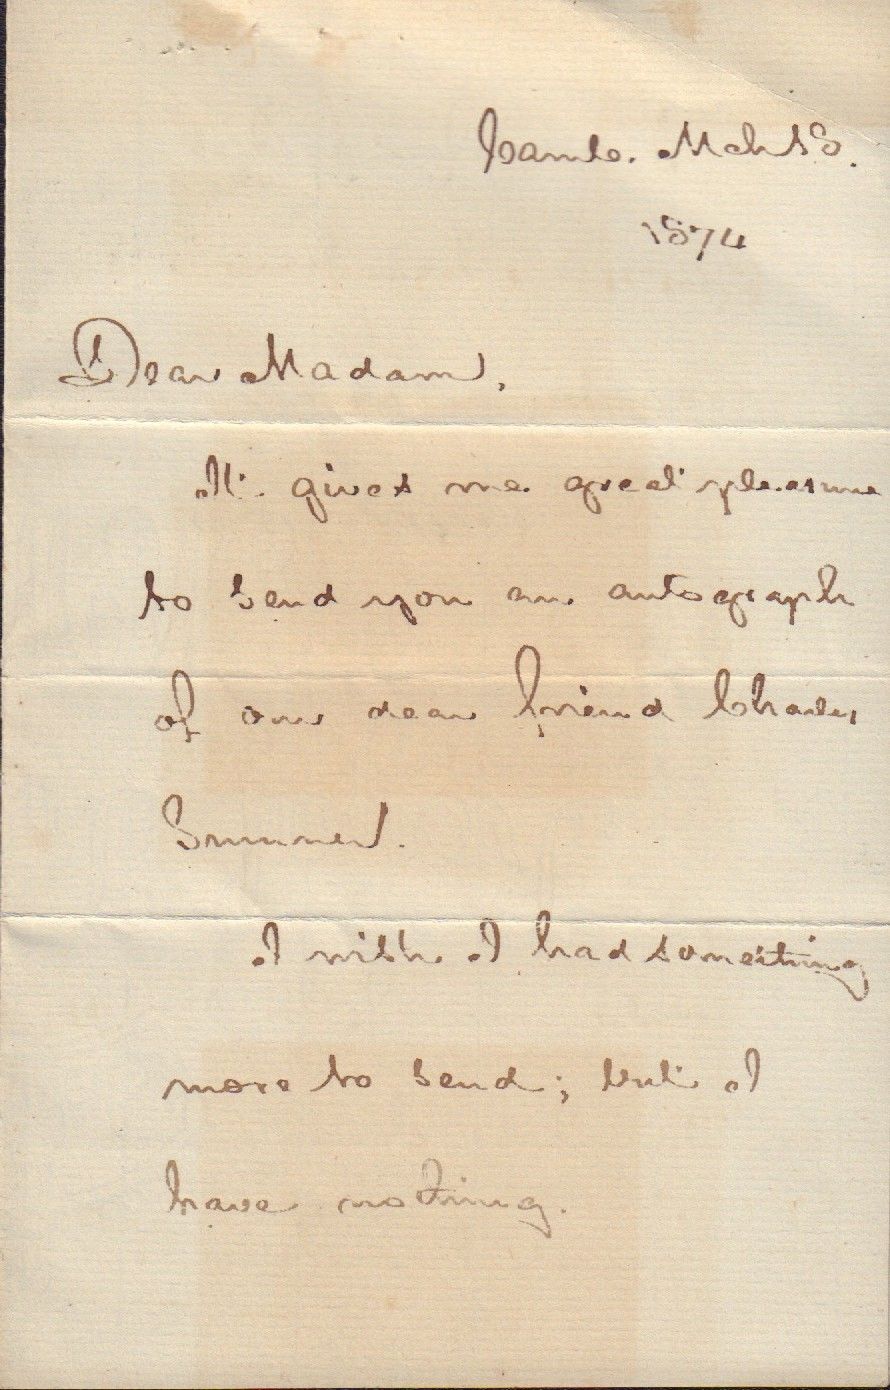 Camb. Mch 18.
1874
Dear Madam,
It gives me great pleasure
to send you an autograph
of our dear friend Charles
Sumner.
I wish I had something
more to send; but I
have nothing.